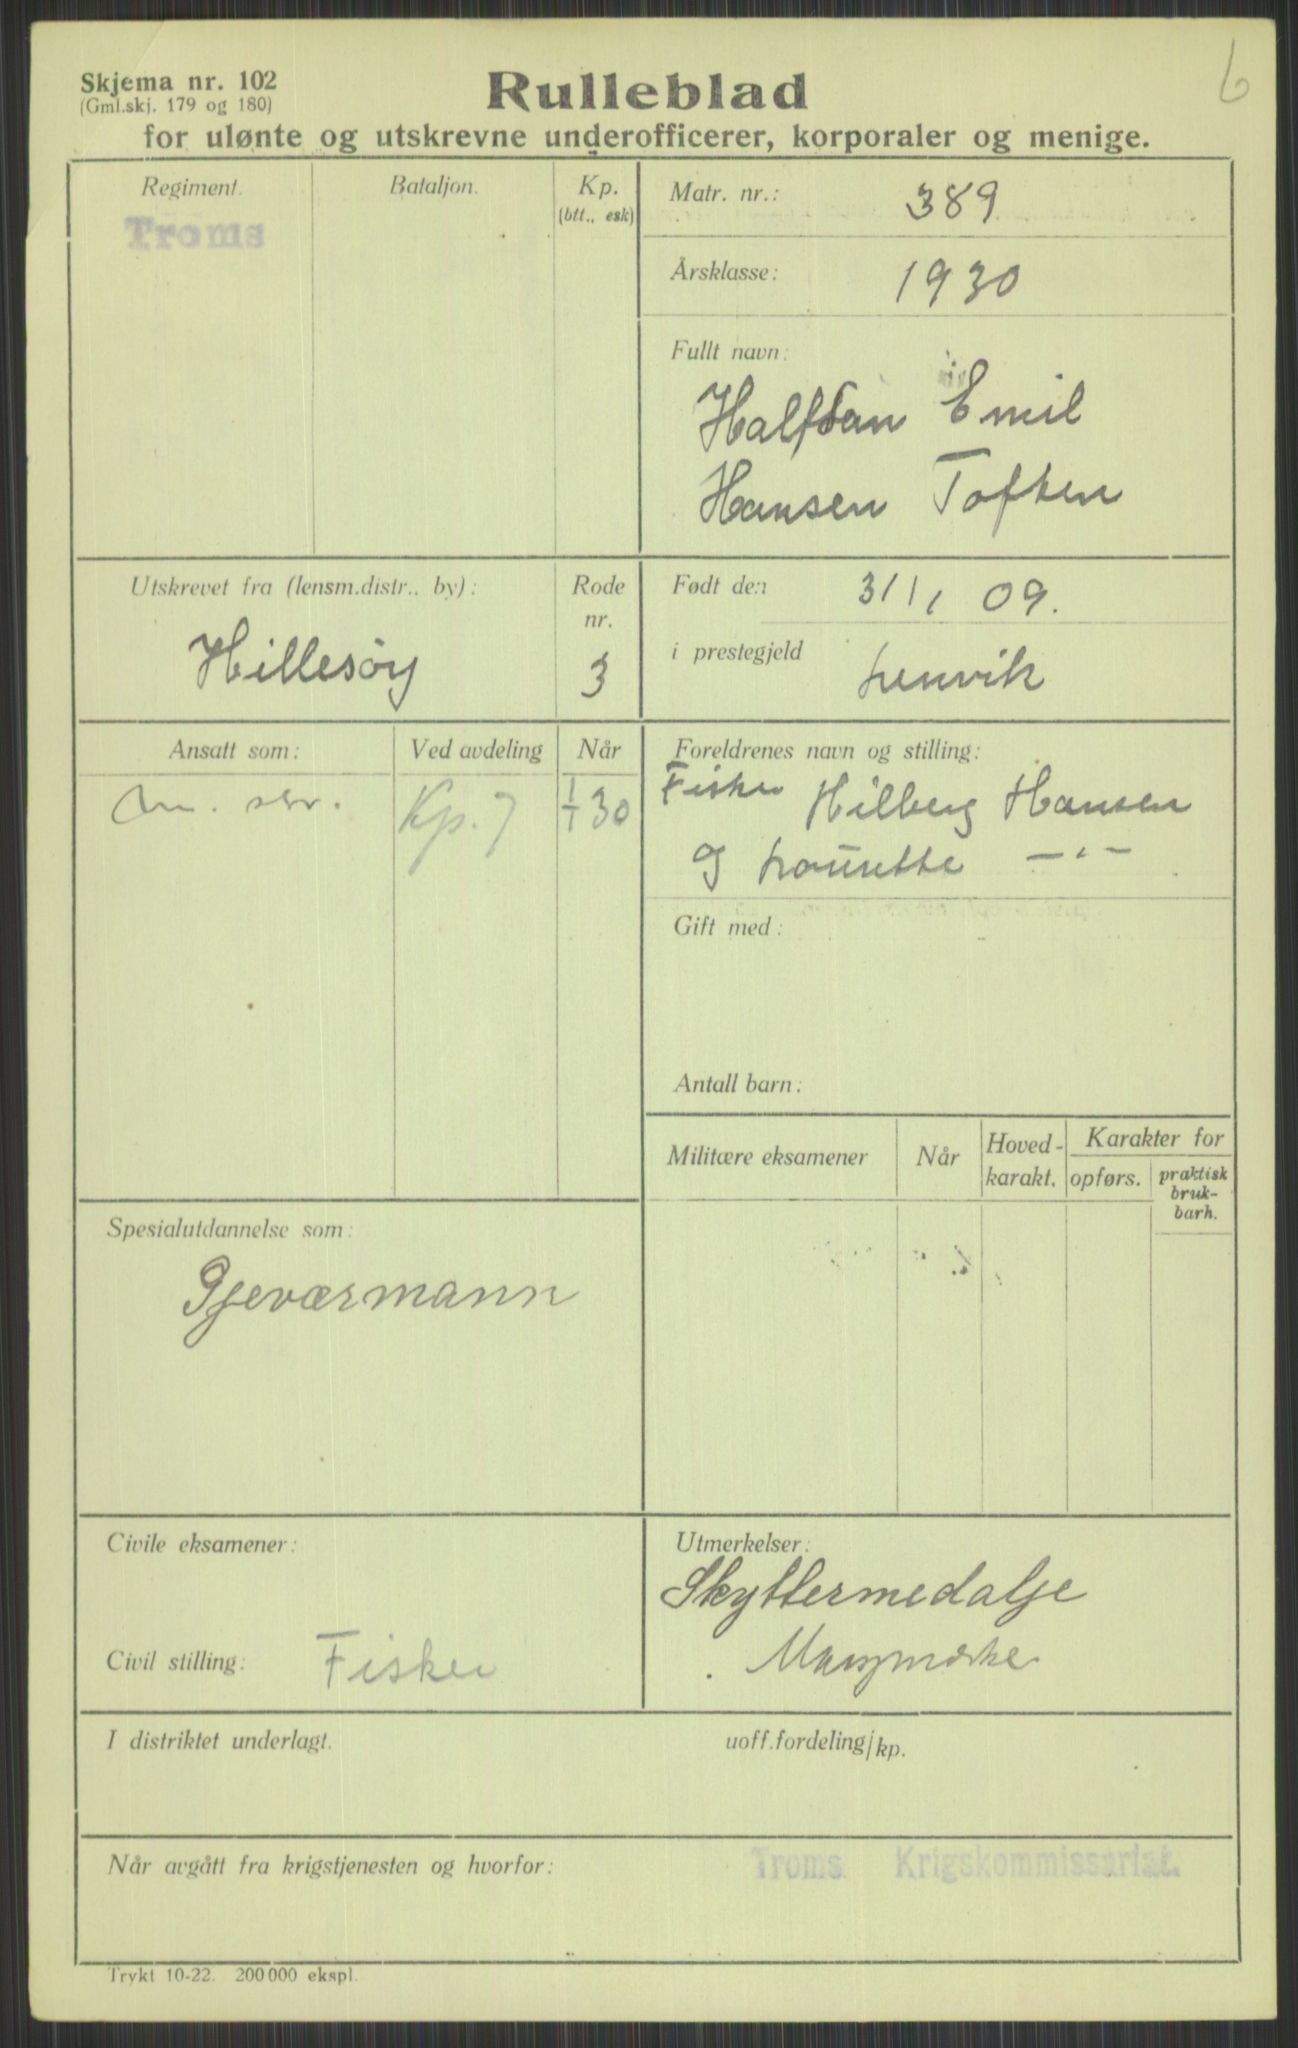 6
Skjema nr. 102
(Gml.skj. 179 og 180)
Rulleblad
for ulønte og utskrevne underofficerer, korporaler og menige.
Regiment.
Troms
Bataljon.
Kp.
(btt., esk)
Matr. nr.: 389
Årsklasse: 1930
Fullt navn:
Halfdan Emil
Hansen Toften
Utskrevet fra (lensm.distr., by):
Hillesöy
Rode
nr.
3
Født den 31/1 09.
i prestegjeld Lenvik
Ansatt som:
Ved avdeling
Når
Kp. 7
1/1 30
Foreldrenes navn og stilling:
Fisker Hilberg Hansen
og Laurette —"—
Gift med:
Antall barn:
Militære eksamener
Når
Hoved-
karakt.
Karakter for
opførs.
praktisk
bruk-
barh.
Spesialutdannelse som:
Gjeværmann
Civile eksamener:
Civil stilling: Fisker
Utmerkelser:
Skyttermedalje
I distriktet underlagt.
uoff.fordeling/kp.
Når avgått fra krigstjenesten og hvorfor:
Troms Krigskommissariat.
Trykt 10-22. 200 000 ekspl.